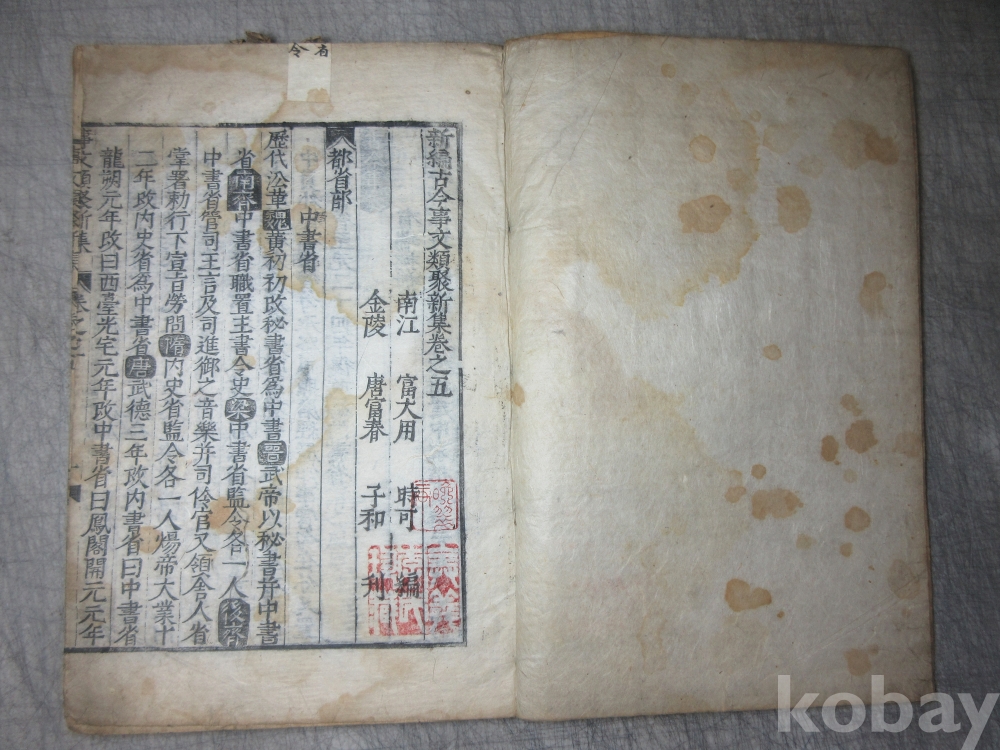 省
令
新編古今事文類聚新集卷之五
南江 富大用 時可 編
金陵 唐富春 子和 刊
都省部
中書省
歷代沿革魏黄初初改秘書省爲中書晋武帝以秘書并中書
省南齊中書省職置主書令史梁中書省監令各一人後齊
中書省管司王言及司進御之音樂并司伶官又領舎人省
掌署勅行下宣旨勞問隋内史省監令各一人煬帝大業十
二年改内史省爲中書省唐武德三年改内書省曰中書省
龍朔元年改曰西臺光宅元年改中書省曰鳳閣開元元年
kobay